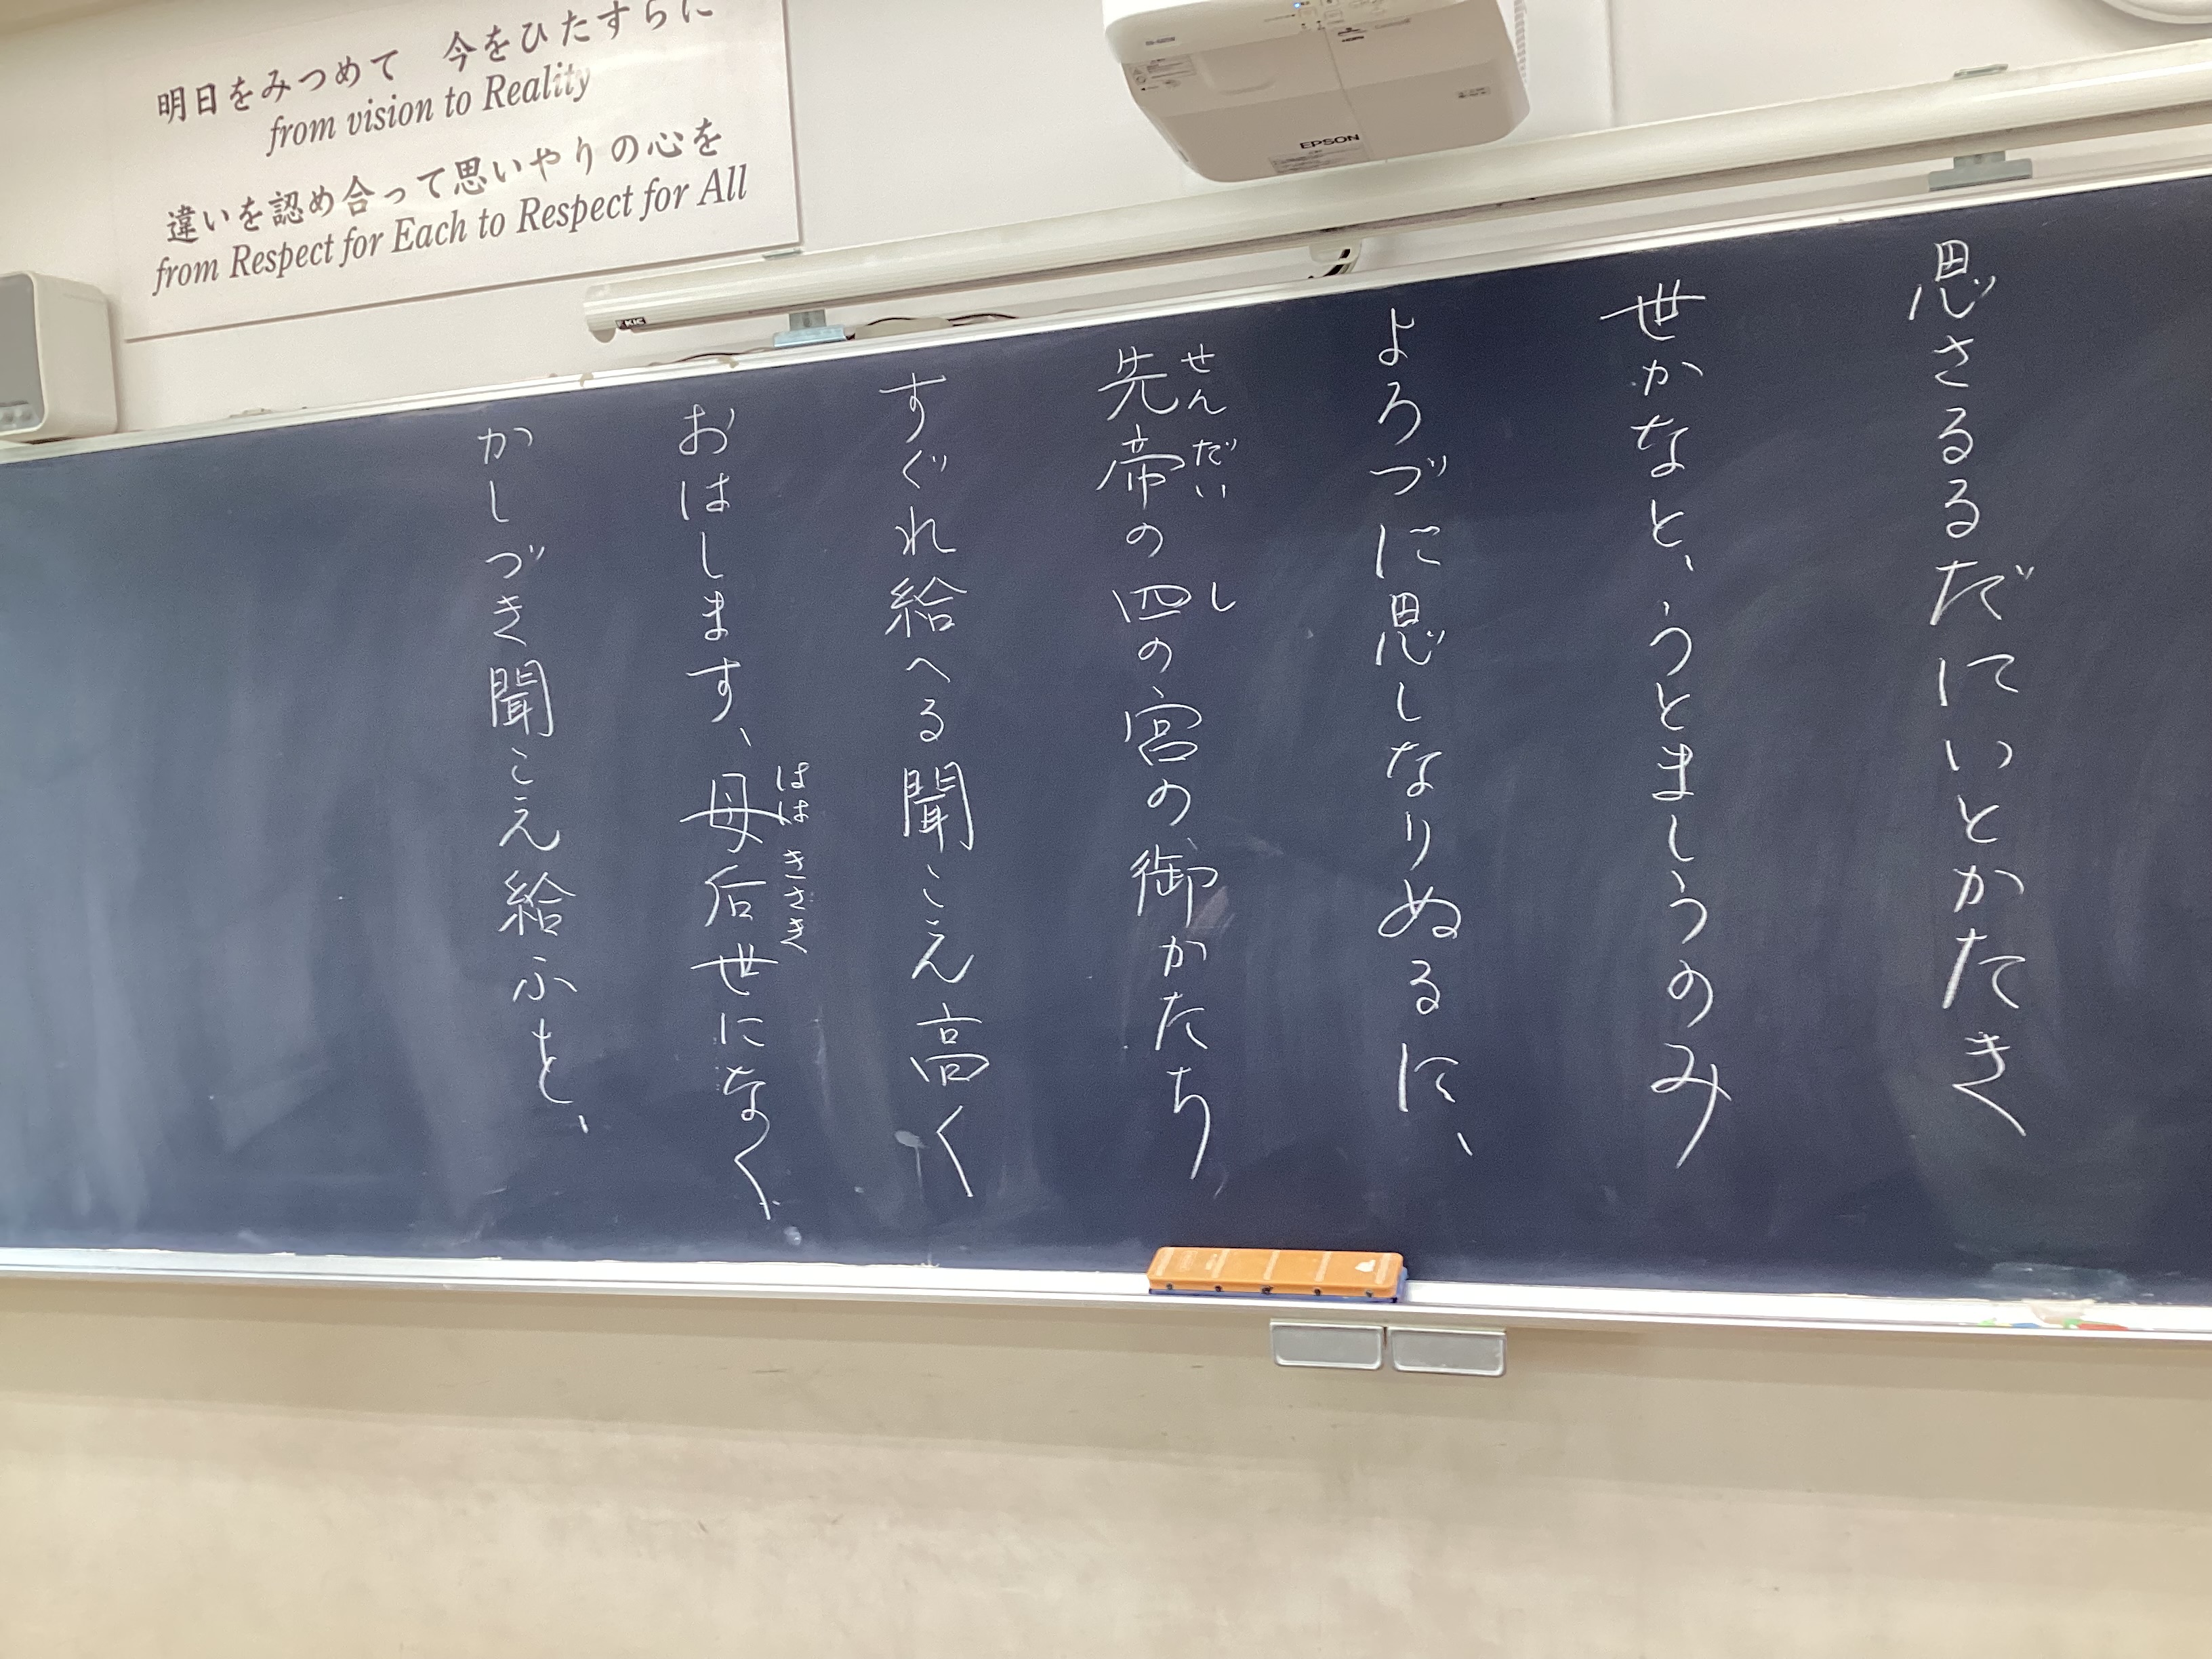 明日をみつめて 今をひたすらに
from vision to Reality
違いを認め合って思いやりの心を
from Respect for Each to Respect for All
EPSON
KIC
思さるるだにいとかたき
世かなと、うとましうのみ
よろづに思しなりぬるに、
せんだい し
先帝の四の宮の御かたち
すぐれ給へる聞こえ高く
はは きさき
おはします、母后世になく
かしづき聞こえ給ふを、